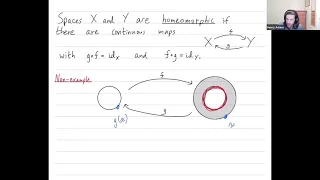 Spaces X and Y are homeomorphic if
there are continuous maps
f
X Y
g
with g∘f = id_X and f∘g = id_Y.
Non-example
f
g
g(x)